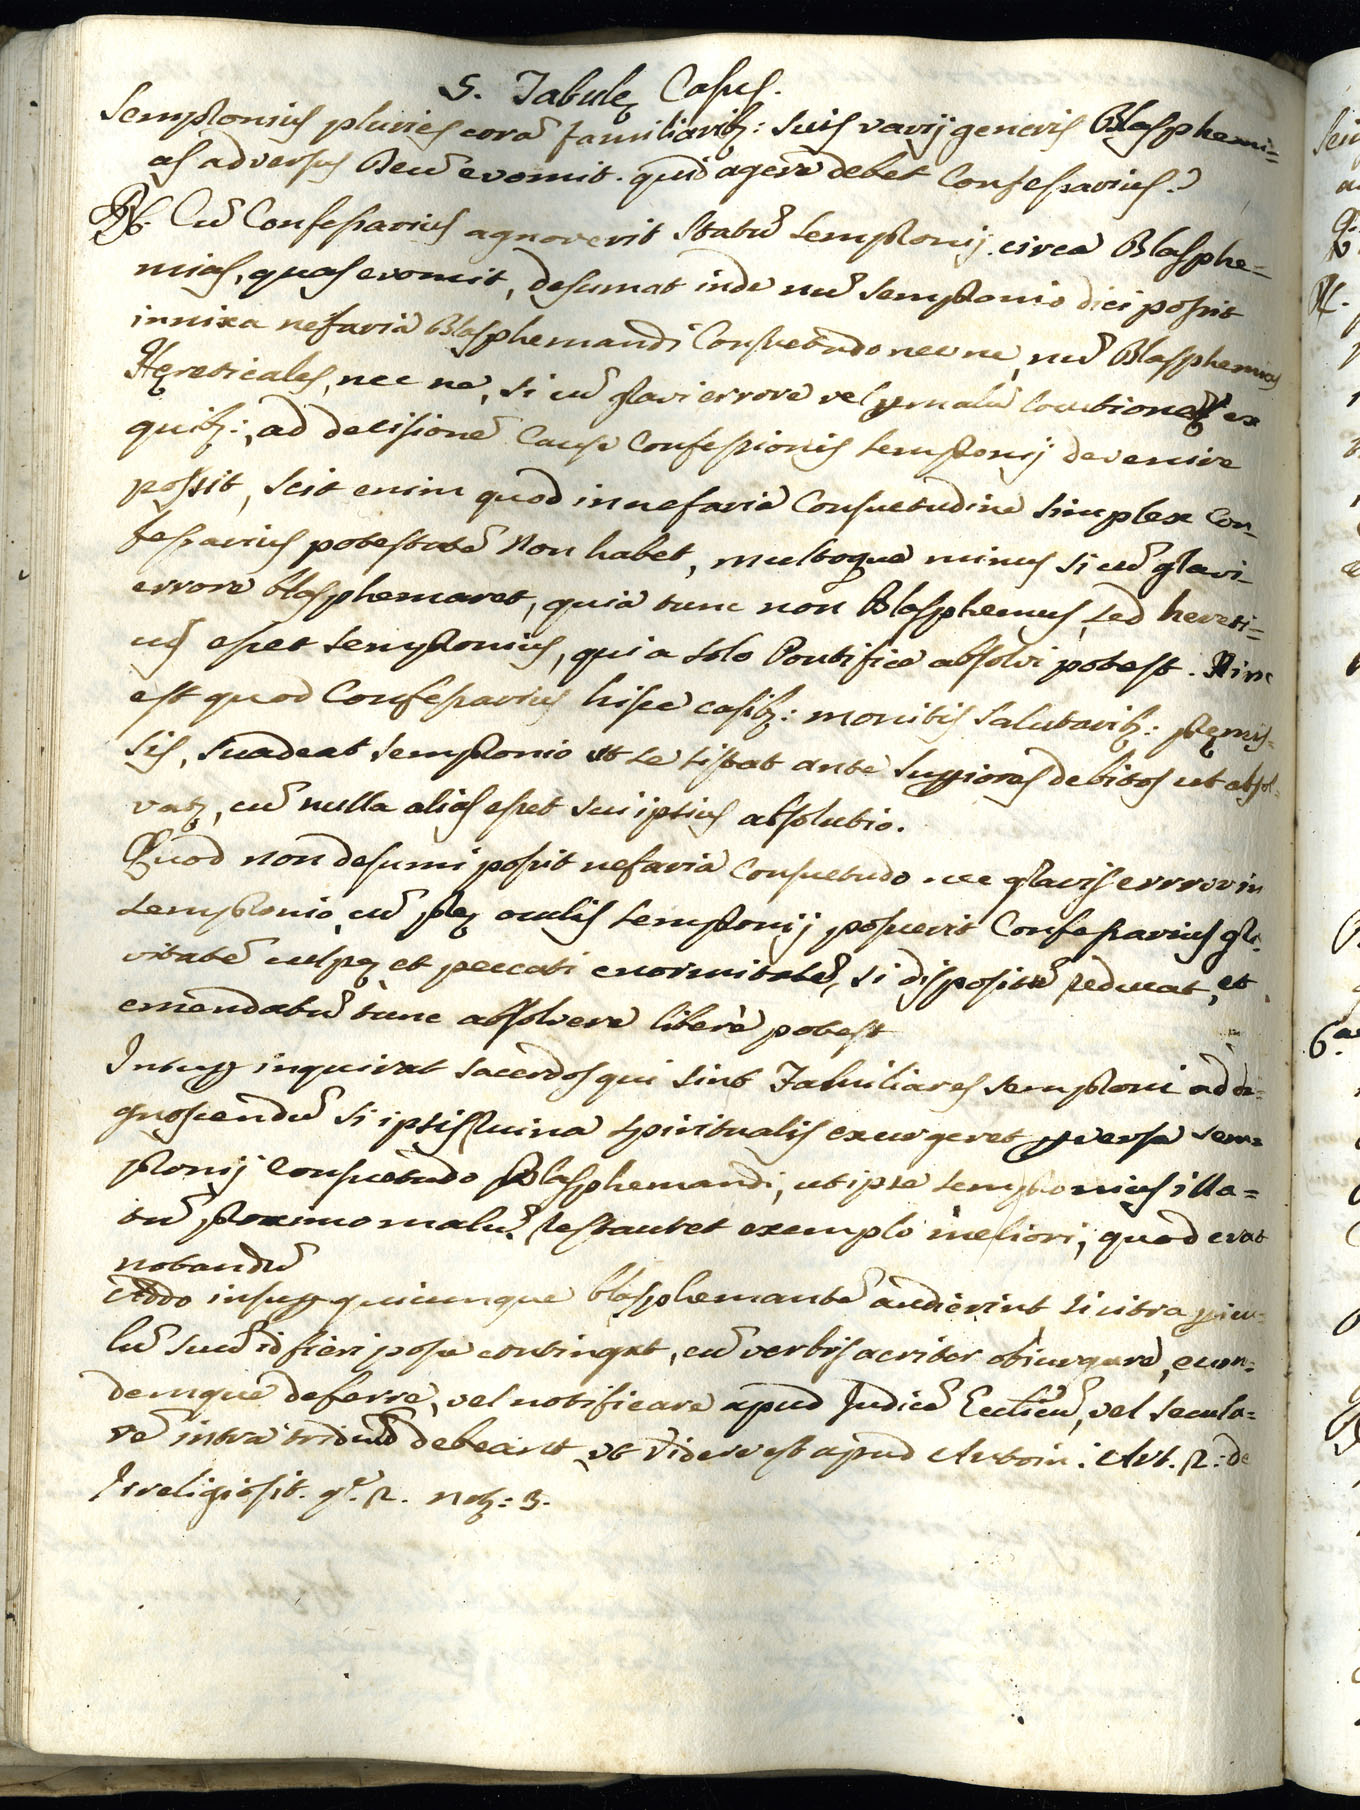 5. Tabulę Casus.
Sempronius pluries corã familiaribꝫ: suis varij generis Blasphemi=
as adversus Deũ evomit. quid agere debet Confessarius?
Rꝫ. Cũ Confessarius agnoverit statũ Sempronij circa Blasphe=
mias, quas evomit, desumat inde nũ Sempronio dici possit
innixa nefaria Blasphemandi Consuetudo nec ne, nũ Blasphemias
Hęreticales, nec ne, si cũ gravi errore vel ꝑ malã locutionẽ ex
quibꝫ:, ad decisionẽ Causę Confessionis Sempronij devenire
possit, scit enim quod in nefaria Consuetudine simplex Con-
fessarius potestatẽ non habet, multoque minus si cũ gravi
errore blasphemaret, quia tunc non Blasphemus, sed hereti=
cus esset Sempronius, qui a solo Pontifice absolvi potest. Hinc
est quod Confessarius hisce casibꝫ: monitis salutaribꝫ: pręmis=
sis, suadeat Sempronio ut se sistat ante Suꝑiores debitos ut absol=
vatꝫ, cũ nulla alias esset sui ipsius absolutio.
Quod non desumi possit nefaria consuetudo nec gravis error in
Sempronio, cũ prę oculis Sempronij posuerit Confessarius gra
vitatẽ culpę et peccati enormitatẽ, si dispositũ reducat, et
emendatũ tunc absolvere liberè potest
Insuꝑ inquirat sacerdos qui sint Familiares Semproni ad di=
gnoscendũ si ipsis ruina spiritualis exurgeret ꝑversa Sem=
pronij Consuetudo Blasphemandi, ut ipse Sempronius illa=
tũ proximo malũ restauret exemplo meliori, quod erat
notandũ
Addo insuꝑ quicunque blasphemantẽ audierint si citra ꝑicu=
lũ suũ id fieri posse contingat, eũ verbis acriter obiurgare, eun=
demque deferre, vel notificare apud Judicẽ Ecclicũ, vel secula=
rẽ intra triduũ debeant ut videre est apud Antoin: Art. 2: de
Irreligiosit. qe. 2. nobꝫ: 3.